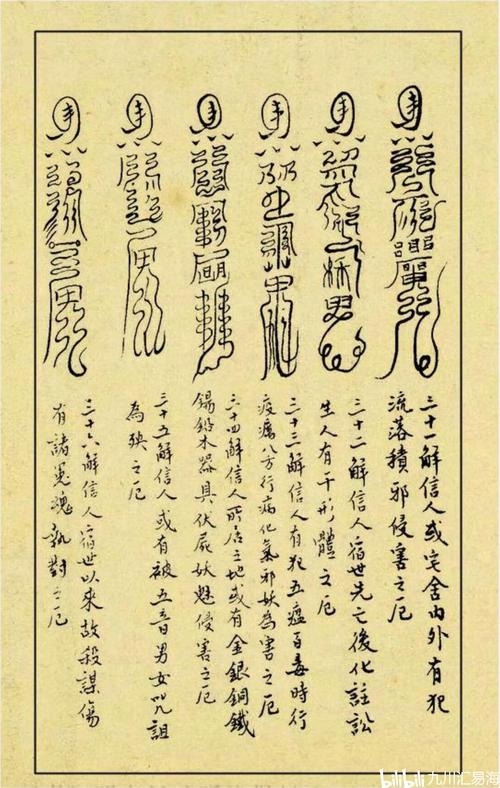 三十一解信人或宅舍内外有犯
流落積邪侵害之厄
三十二解信人宿世先亡後化註訟
生人有干形體之厄
三十三解信人有犯五瘟百毒時行
疫癘八方行病化氣邪妖為害之厄
三十四解信人所居之地或有金銀銅鐵
錫鉛木器具伏屍妖魅侵害之厄
三十五解信人或有被五音男女咒詛
為殃之厄
三十六解信人宿世以來故殺謀傷
有諸冤魂執對之厄
bilibili 九川汇易海